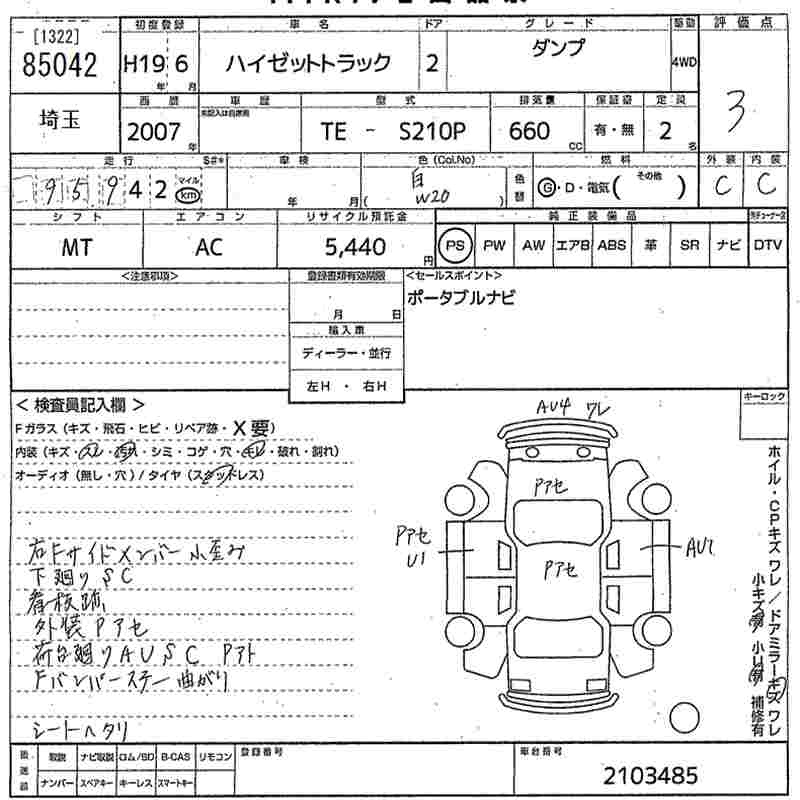 [1322]
85042
初度登録
H19 6
年 月
車名
ハイゼットトラック
ドア
2
グレード
ダンプ
駆動
4WD
評価点
3
埼玉
西暦
2007
年
車歴
未記入は自家用
型式
TE - S210P
排気量
660
CC
保証書
有・無
定員
2
名
走行
S#*
95942
マイル
km
車検
年 月
色(Col.No)
白
W20
( )
色替
燃料
G・D・電気( その他 )
外装
C
内装
C
シフト
MT
エアコン
AC
リサイクル預託金
5,440
円
純正装備品
PS PW AW エアB ABS 革 SR ナビ
DTV
<注意事項>
登録書類有効期限
月 日
輸入車
ディーラー・並行
左H ・ 右H
<セールスポイント>
ポータブルナビ
< 検査員記入欄 >
Fガラス(キズ・飛石・ヒビ・リペア跡・X要)
内装(キズ・スレ・汚れ・シミ・コゲ・穴・モレ・破れ・割れ)
オーディオ(無し・穴)/タイヤ(スタッドレス)
右Fサイドメンバー小歪み
下廻りSC
看板跡
外装Pアセ
荷台廻りAU SC Pアト
Fバンパーステー曲がり
シートヘタリ
AU4 ワレ
Pアセ
Pアセ
U1
Pアセ
AU1
キーロック
ホイル・CPキズ ワレ/ドアミラーキズ ワレ
補修有
後送部
取説 ナビ取説 ロム/SD B-CAS リモコン
ナンバー スペアキー キーレス スマートキー
登録番号
車台番号
2103485